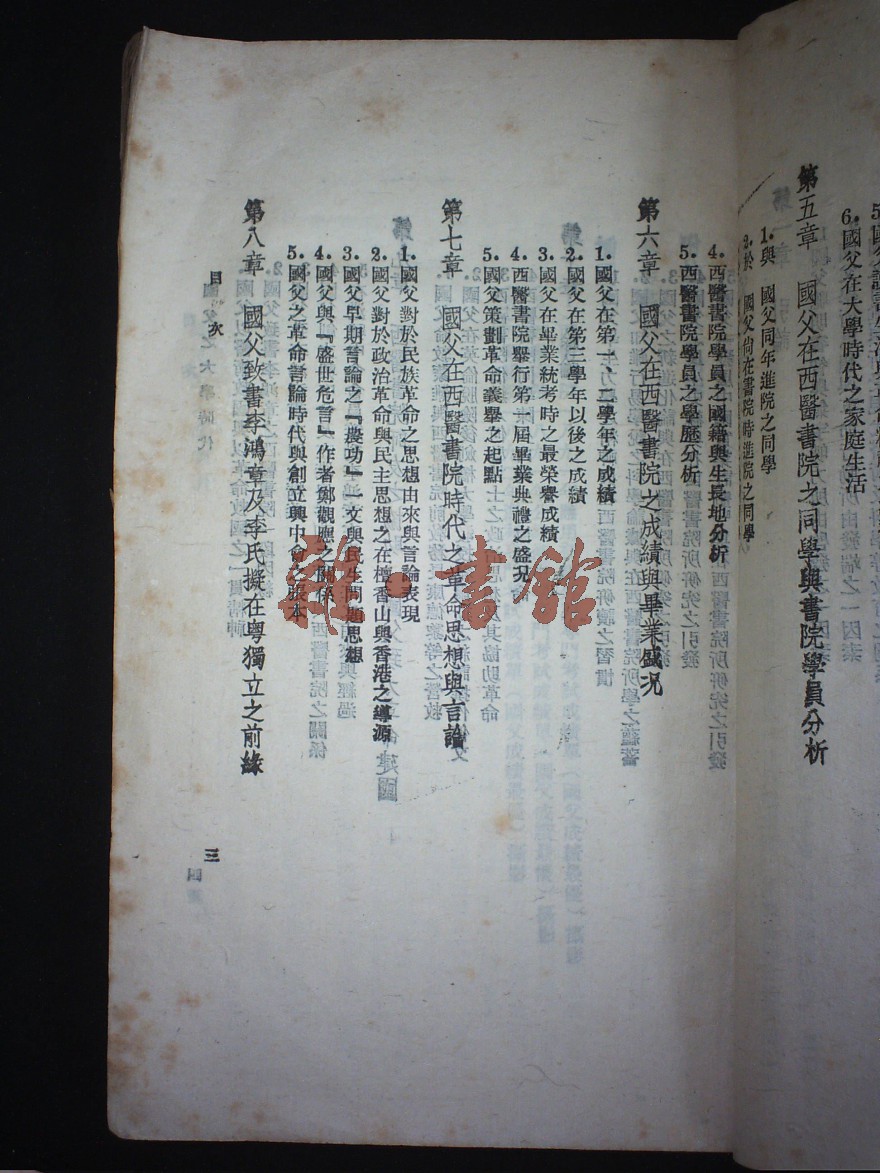 6.國父在大學時代之家庭生活
第五章　國父在西醫書院之同學與書院學員分析
1.與　國父同年進院之同學
2.於　國父尚在書院時進院之同學
4.西醫書院學員之國籍與生長地分析
5.西醫書院學員之學歷分析
第六章　國父在西醫書院之成績與畢業盛況
1.國父在第一、二學年之成績
2.國父在第三學年以後之成績
3.國父在畢業統考時之最榮譽成績
4.西醫書院舉行第一屆畢業典禮之盛況
5.國父策劃革命義舉之起點
第七章　國父在西醫書院時代之革命思想與言論
1.國父對於民族革命之思想由來與言論表現
2.國父對於政治革命與民主思想之在檀香山與香港之導源
3.國父早期言論之『農功』一文與民生問題思想
4.國父與『盛世危言』作者鄭觀應之關係
5.國父之革命言論時代與創立興中會之張本
第八章　國父致書李鴻章及李氏擬在粵獨立之前緣
目次
三
雜·書館